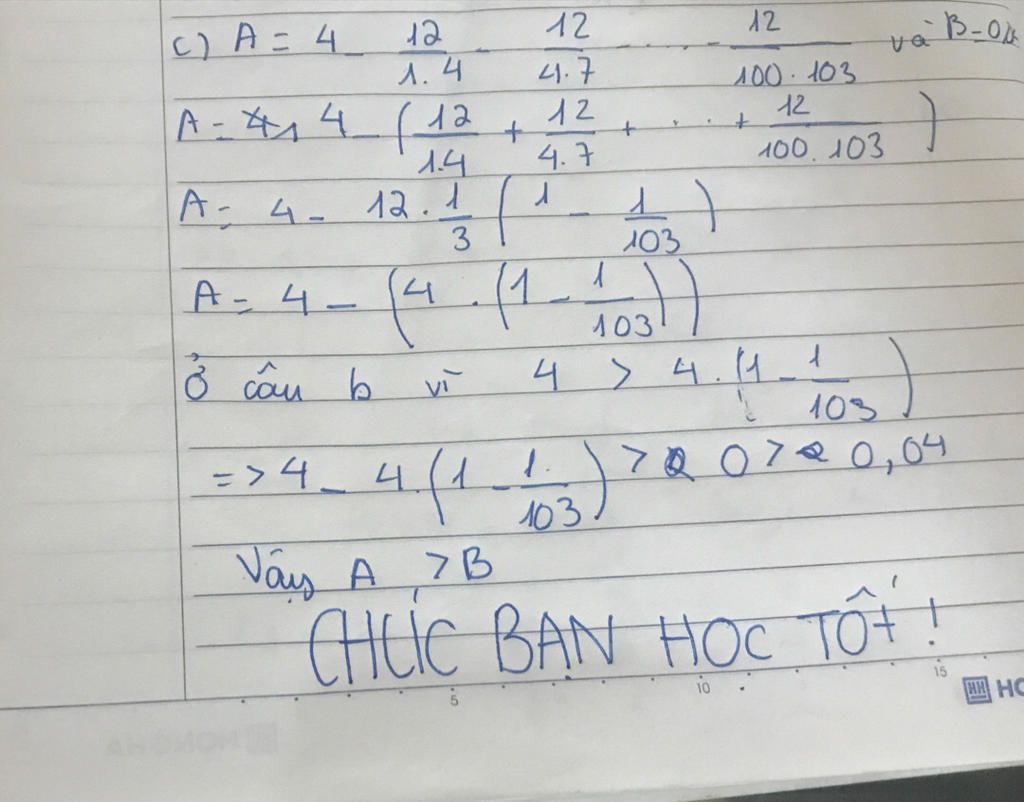 c) A = 4 - 12/1.4 - 12/4.7 - ... - 12/100.103 và B = 0,4
A = 4 - (12/1.4 + 12/4.7 + ... + 12/100.103)
A = 4 - 12.1/3 (1 - 1/103)
A = 4 - (4.(1 - 1/103))
Ở câu b vì 4 > 4.(1 - 1/103)
=> 4 - 4.(1 - 1/103) > 0 > 0,04
Vậy A > B
CHÚC BẠN HỌC TỐT !
5 10 15